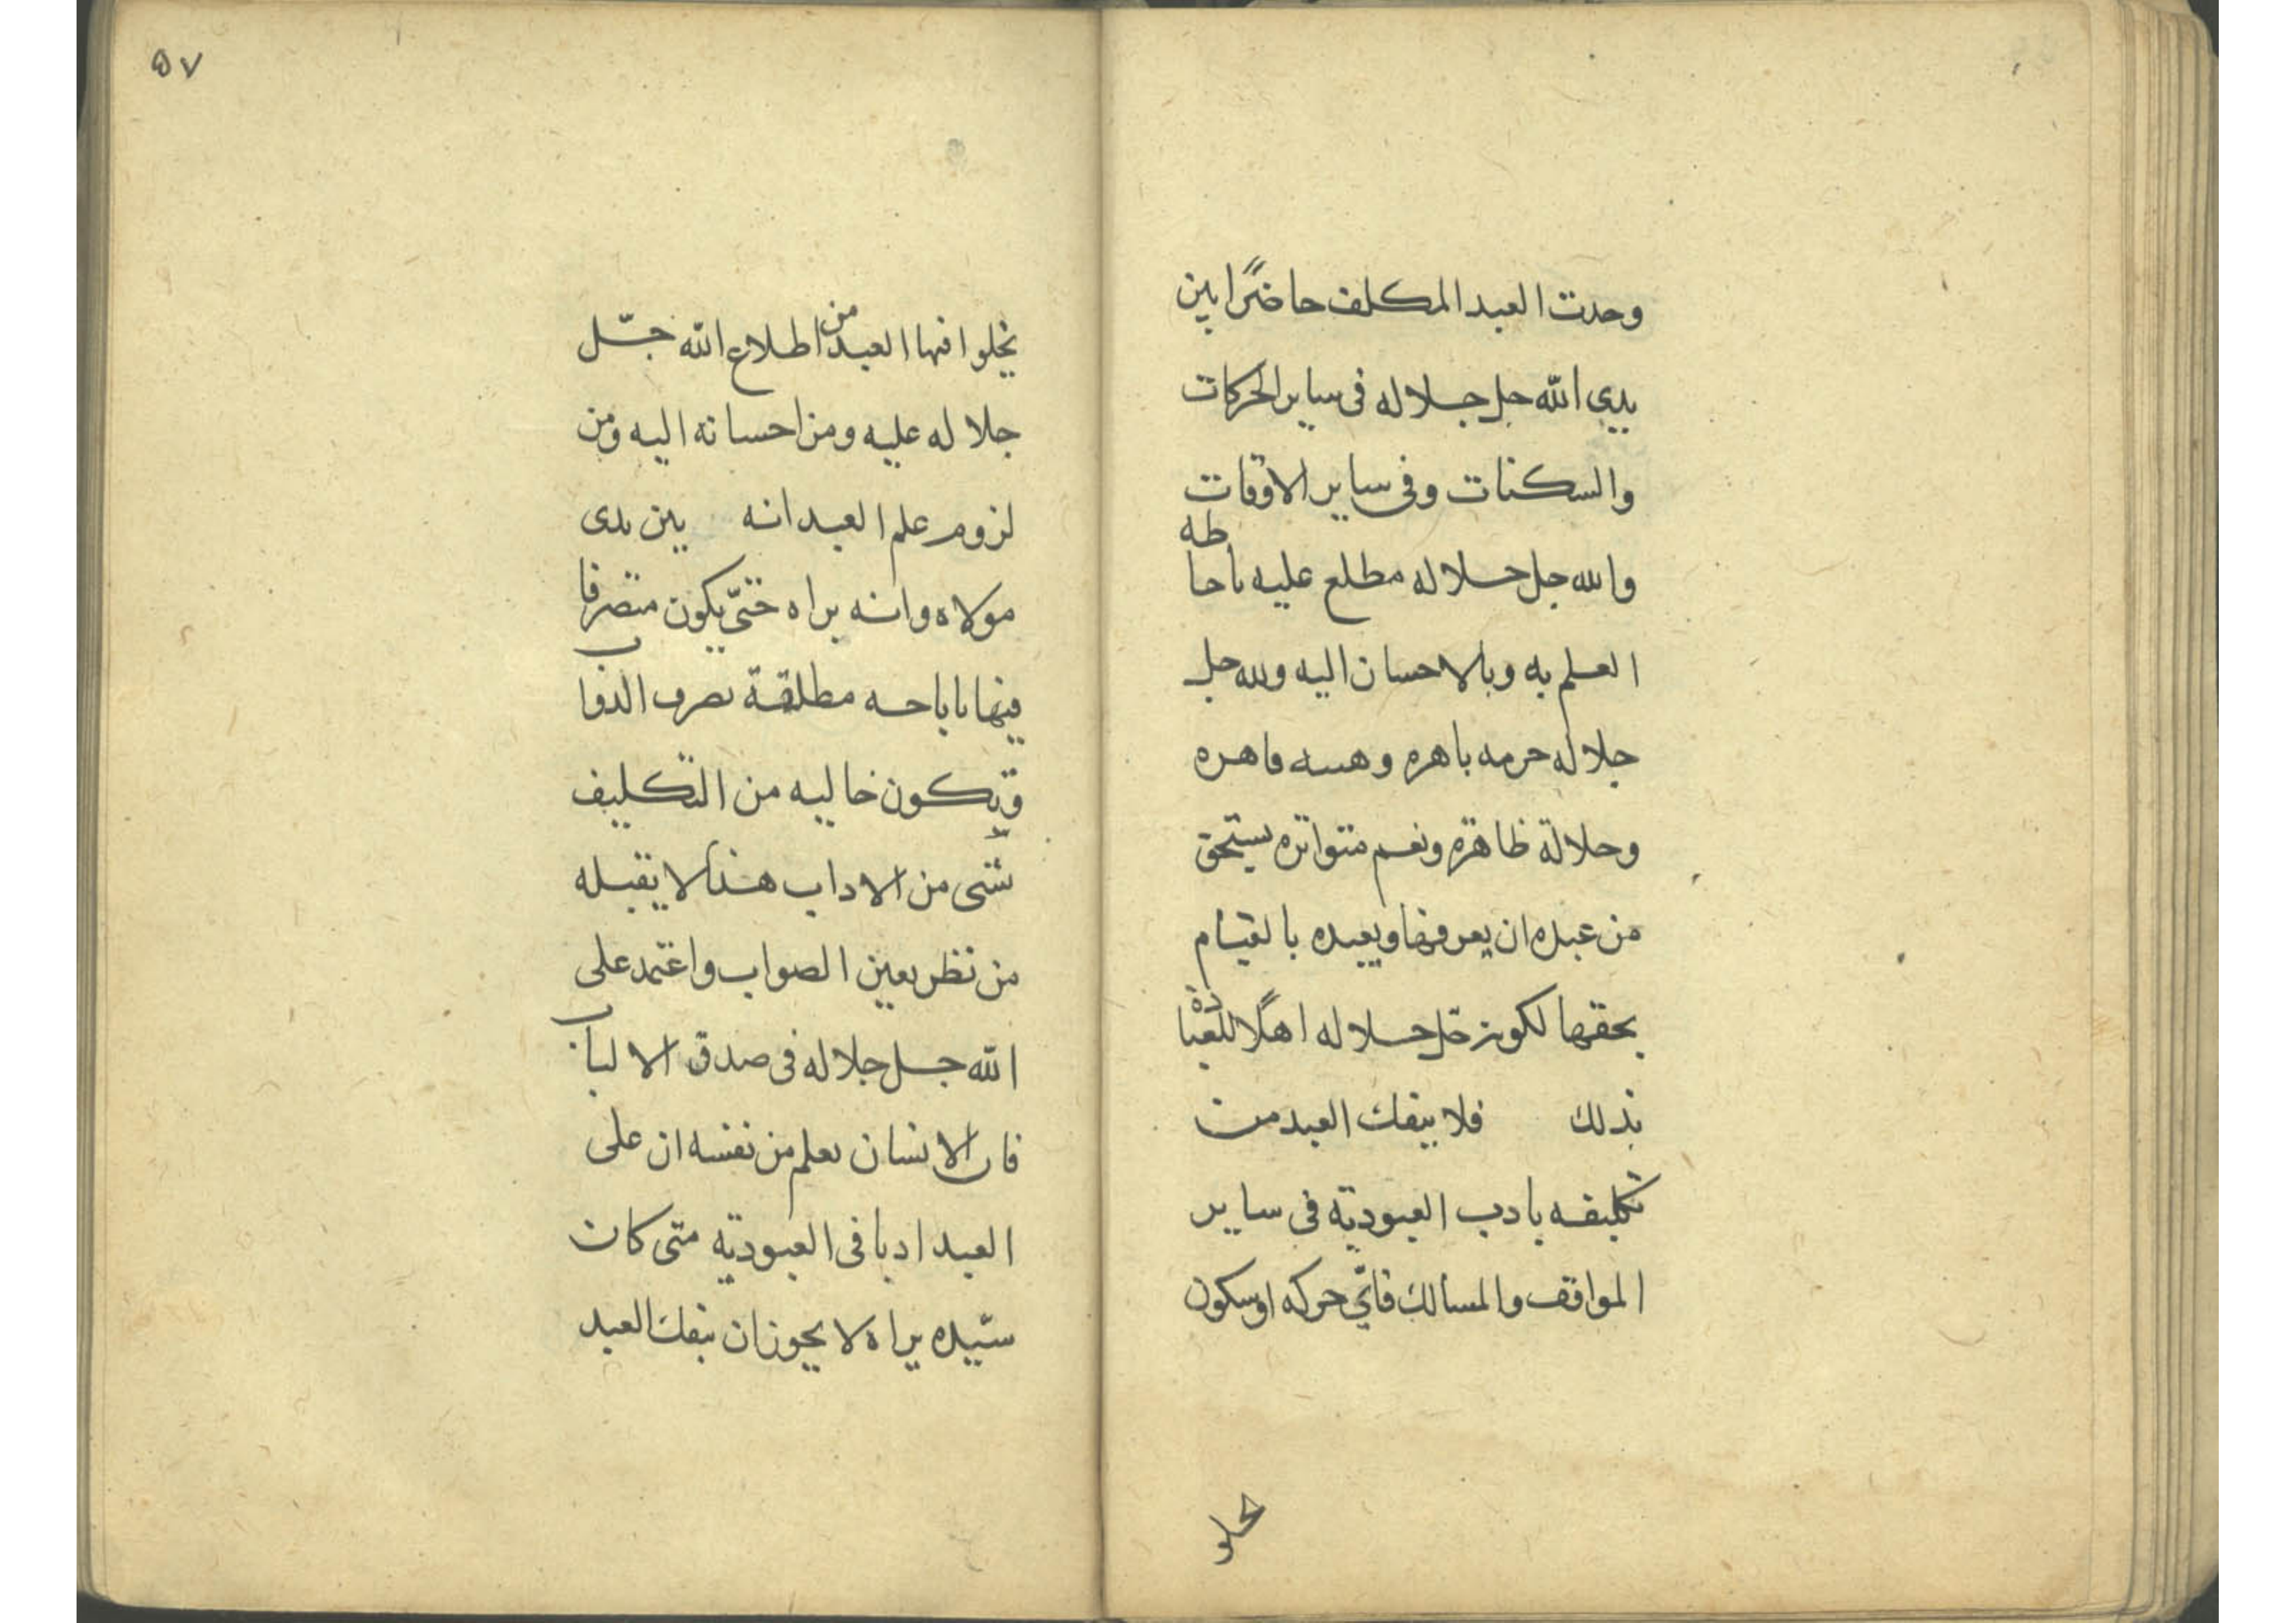 وحدت العبد المكلف حاضرًا بين
يدي الله جل جلاله فى ساير الحركات
والسكنات وفى ساير الاوقات
والله جل جلاله مطلع عليه باحاطه
العلم به وبالاحسان اليه ولله جل
جلاله حرمه باهره وهيبه قاهره
وجلالة ظاهره ونعم متواتره يستحق
من عبده ان يعرفها ويعبده بالقيام
بحقها لكونه جل جلاله اهلًا للعبادة
بذلك فلا ينفك العبد من
تكليفه بادب العبودية فى ساير
المواقف والمسالك فاىّ حركه اوسكون
يخلو
۵۷
يخلوا فيها العبد من اطلاع الله جلّ
جلاله عليه ومن احسانه اليه ومن
لزوم علم العبد انه بين يدى
مولاه وانه يراه حتّى يكون متصرفا
فيها باباحه مطلقة تصرف الدواب
ويكون خاليه من التكليف
بشئ من الاداب هذا لا يقبله
من نظر بعين الصواب واعتمد على
الله جل جلاله فى صدق الالباب
فان الانسان يعلم من نفسه ان على
العبد ادبا فى العبودية متى كان
سيّده يراه لا يجوز ان ينفك العبد